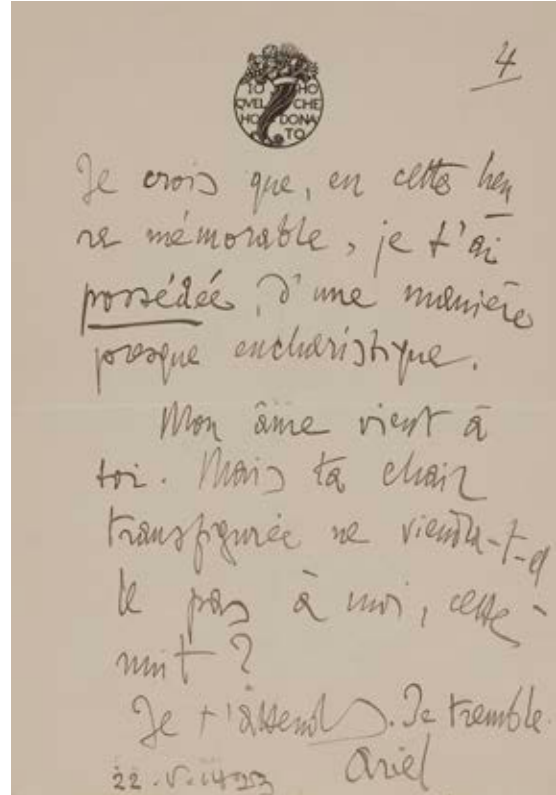 4
IO HO
QVEL CHE
HO DONA
TO
Je crois que, en cette heu
re mémorable, je t'ai
possédée, d'une manière
presque eucharistique.
Mon âme vient à
toi. Mais ta chair
transfigurée ne viendra-t-el
le pas à moi, cette
nuit?
Je t'attends. Je tremble.
Ariel
22.V.1923